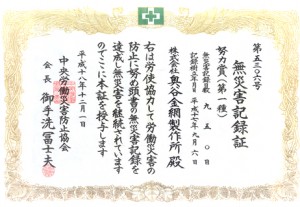 第五三〇六号
無災害記録証
努力賞(第一種)
無災害記録日数 九五〇日
記録樹立年月日 平成十七年九月六日
株式会社奥谷金網製作所 殿
右は労使協力して労働災害の
防止に努め頭書の無災害記録を
達成し無災害を継続されています
のでここに本証を授与します
平成十八年二月一日
中央労働災害防止協会
会長 御手洗冨士夫